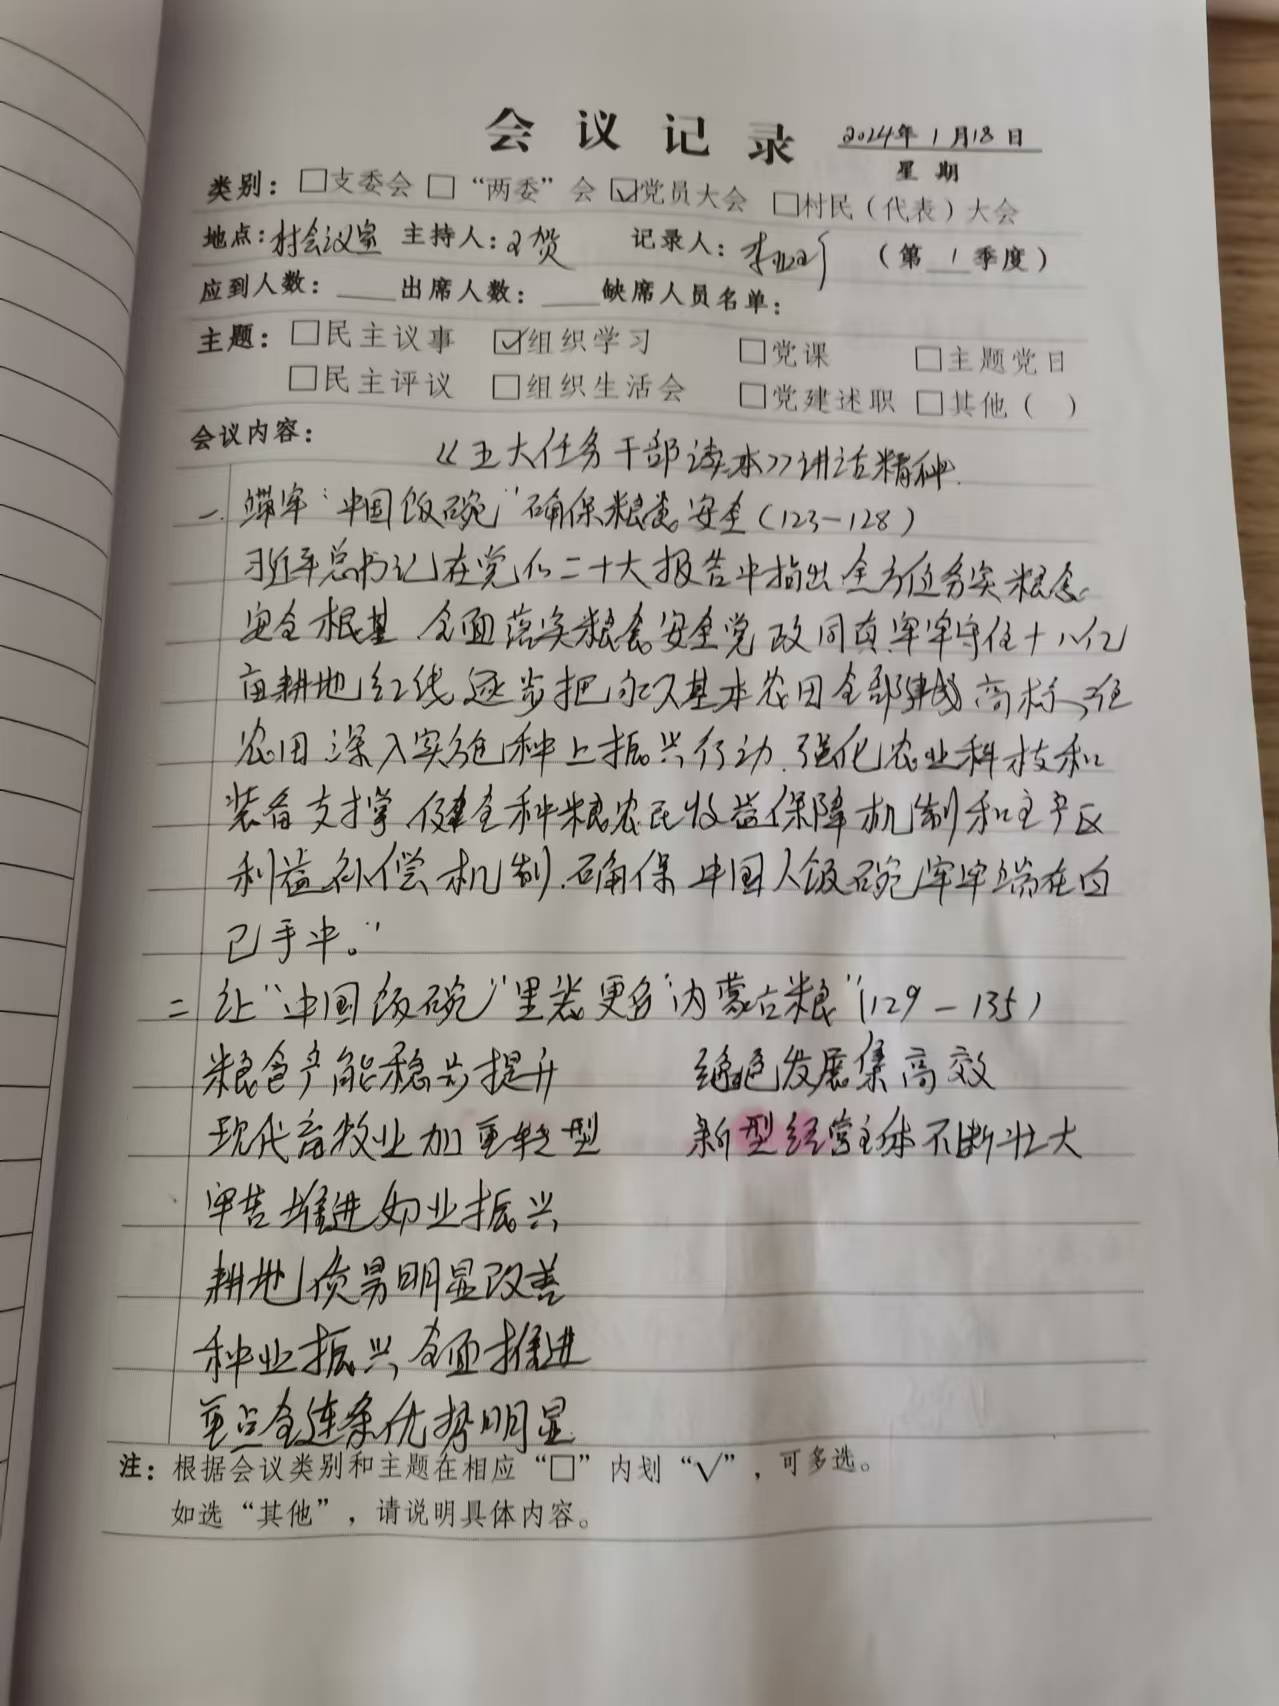 会议记录 2024年1月18日
星期
类别：□支委会 □“两委”会 ☑党员大会 □村民（代表）大会
地点：村会议室 主持人： 记录人： （第1季度）
应到人数：____出席人数：____缺席人员名单：
主题：□民主议事 ☑组织学习 □党课 □主题党日
□民主评议 □组织生活会 □党建述职 □其他（ ）
会议内容：
《五大任务干部读本》讲话精神.
一. 端牢“中国饭碗”确保粮食安全（123-128）
习近平总书记在党的二十大报告中指出全方位夯实粮食
安全根基 全面落实粮食安全党政同责,牢牢守住十八亿
亩耕地红线,逐步把永久基本农田全部建成高标准
农田深入实施种业振兴行动.强化农业科技和
装备支撑,健全种粮农民收益保障机制和主产区
利益补偿机制.确保中国人饭碗牢牢端在自
己手中。”
二 让“中国饭碗”里装更多“内蒙古粮”（129-135）
粮食产能稳步提升 绿色发展集高效
现代畜牧业加重转型 新型经营主体不断壮大
推进奶业振兴
耕地质量明显改善
种业振兴全面推进
重点全链条优势明显
注：根据会议类别和主题在相应“□”内划“√”，可多选。
如选“其他”，请说明具体内容。